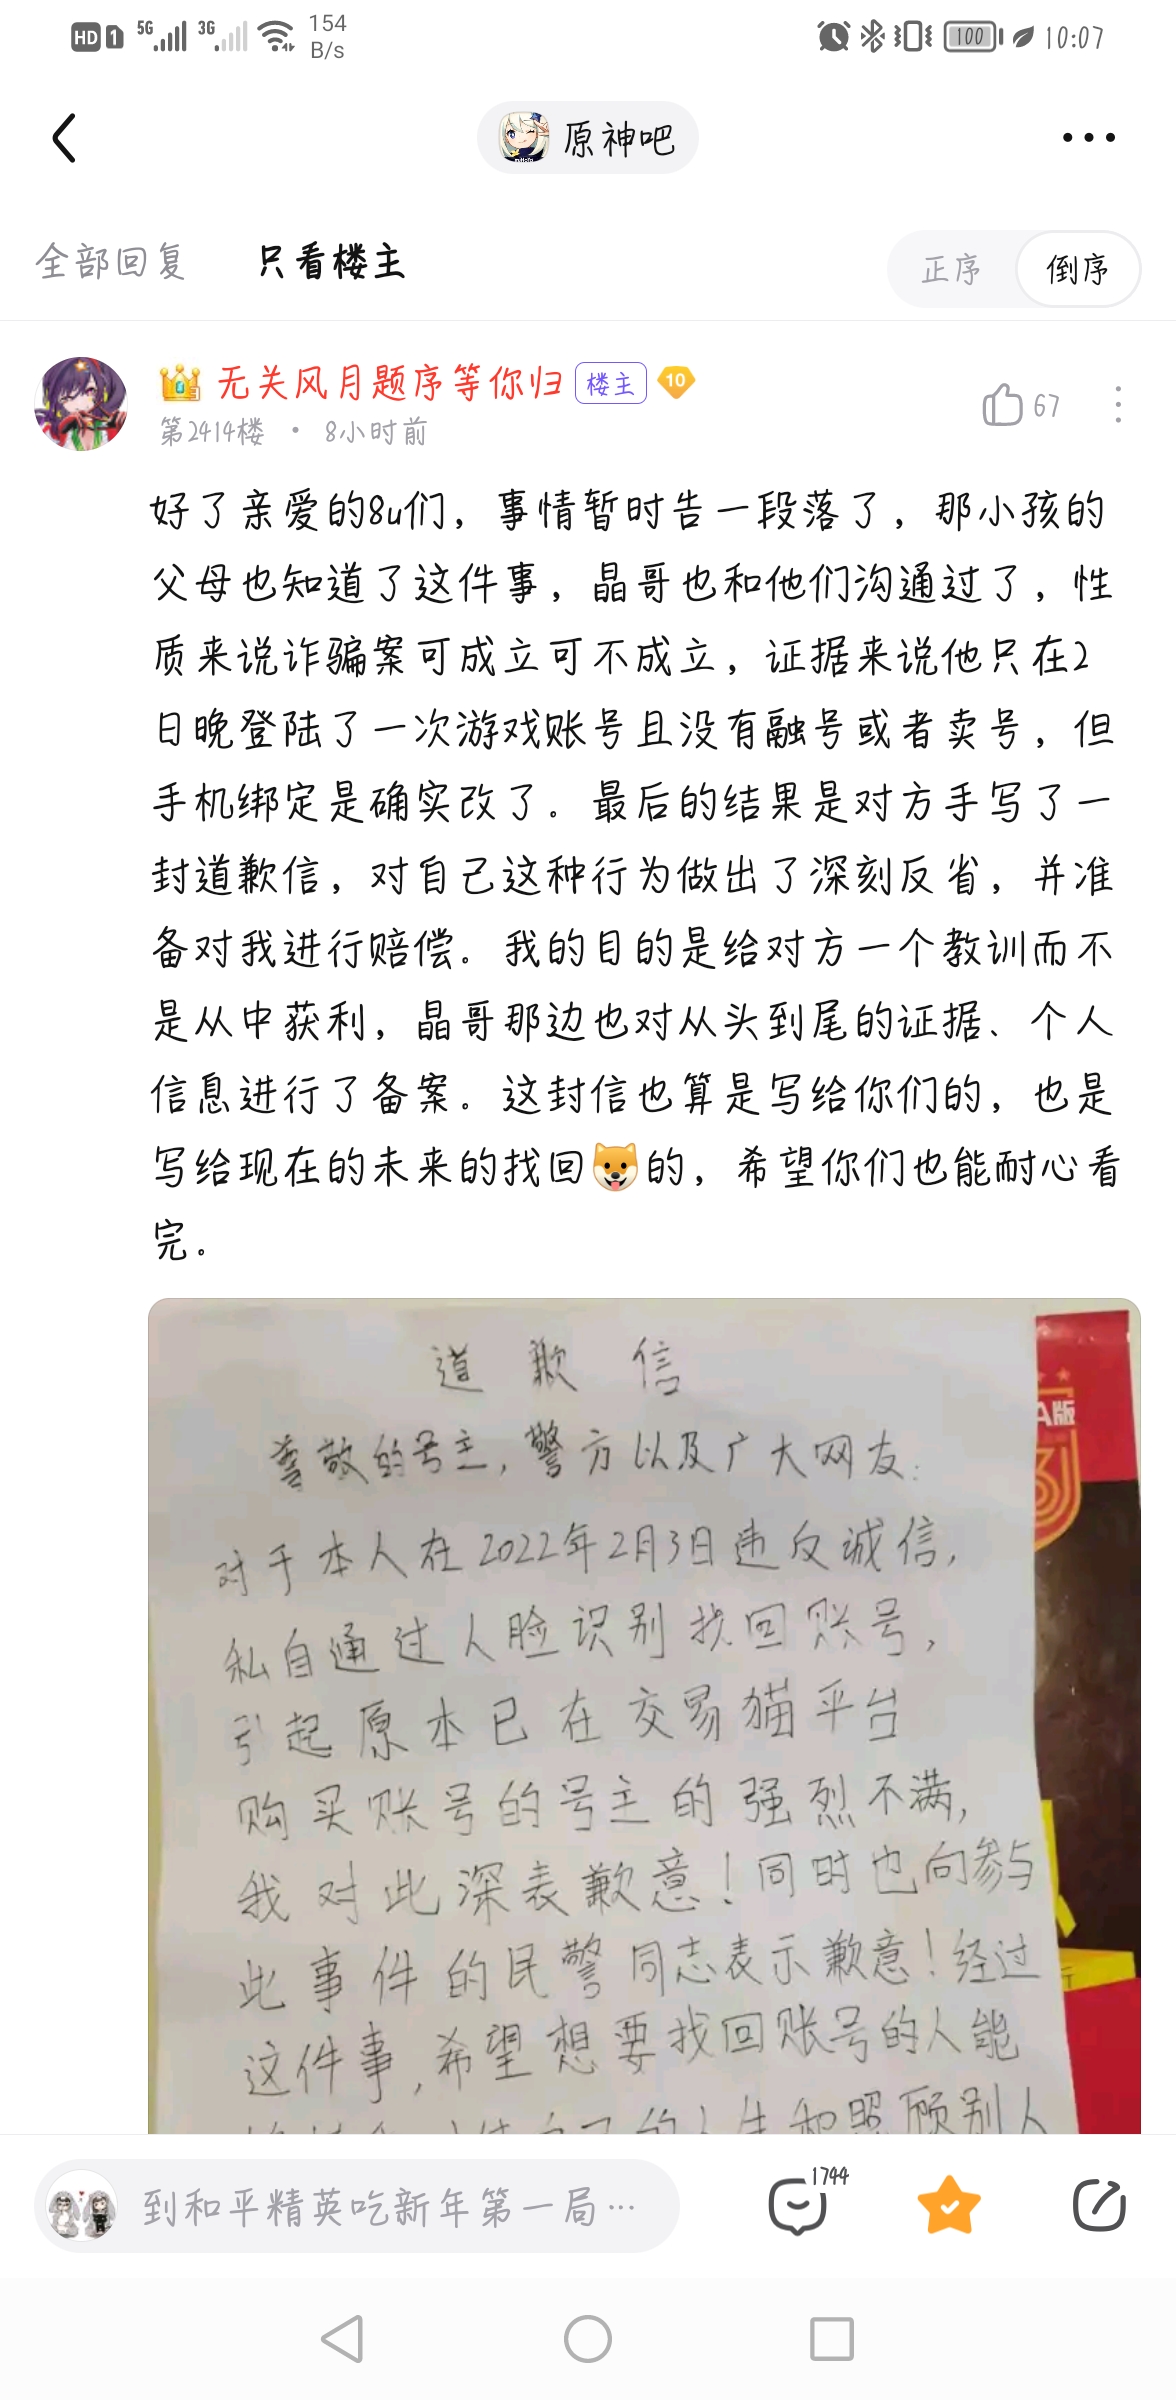 HD 1 5G 3G 154 B/s 100 10:07
原神吧
全部回复 只看楼主 正序 倒序
无关风月题序等你归 楼主 10
第2414楼 · 8小时前 67
好了亲爱的8u们，事情暂时告一段落了，那小孩的
父母也知道了这件事，晶哥也和他们沟通过了，性
质来说诈骗案可成立可不成立，证据来说他只在2
日晚登陆了一次游戏账号且没有融号或者卖号，但
手机绑定是确实改了。最后的结果是对方手写了一
封道歉信，对自己这种行为做出了深刻反省，并准
备对我进行赔偿。我的目的是给对方一个教训而不
是从中获利，晶哥那边也对从头到尾的证据、个人
信息进行了备案。这封信也算是写给你们的，也是
写给现在的未来的找回🐶的，希望你们也能耐心看
完。
道歉信
尊敬的号主，警方以及广大网友：
对于本人在2022年2月3日违反诚信，
私自通过人脸识别找回账号，
引起原本已在交易猫平台
购买账号的号主的强烈不满，
我对此深表歉意！同时也向参与
此事件的民警同志表示歉意！经过
这件事，希望想要找回账号的人能
自己的人生和照顾别人
A版
到和平精英吃新年第一局…
1744